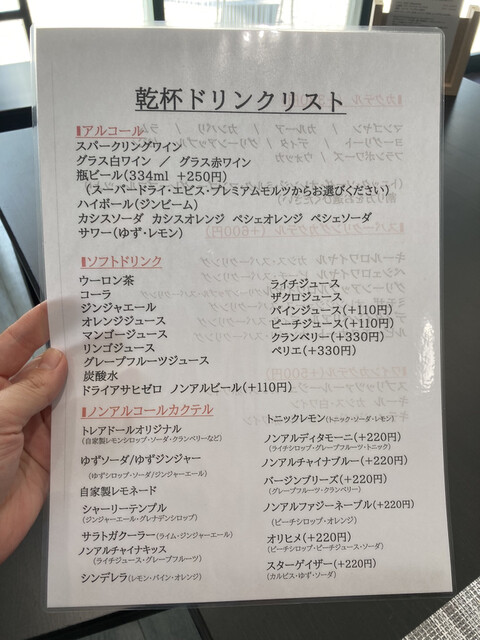 乾杯ドリンクリスト
アルコール
スパークリングワイン
グラス白ワイン ／ グラス赤ワイン
瓶ビール(334ml +250円)
(スーパードライ・エビス・プレミアムモルツからお選びください)
ハイボール(ジンビーム)
カシスソーダ カシスオレンジ ペシェオレンジ ペシェソーダ
サワー(ゆず・レモン)
ソフトドリンク
ウーロン茶
コーラ
ジンジャエール
オレンジジュース
マンゴージュース
リンゴジュース
グレープフルーツジュース
炭酸水
ドライアサヒゼロ ノンアルビール(+110円)
ライチジュース
ザクロジュース
パインジュース(+110円)
ピーチジュース(+110円)
クランベリー(+330円)
ペリエ(+330円)
ノンアルコールカクテル
トレアドールオリジナル
(自家製レモンシロップ・ソーダ・クランベリーなど)
ゆずソーダ/ゆずジンジャー
(ゆずシロップ・ソーダ/ジンジャーエール)
自家製レモネード
シャーリーテンプル
(ジンジャーエール・グレナデンシロップ)
サラトガクーラー(ライム・ジンジャーエール)
ノンアルチャイナキッス
(ライチジュース・グレープフルーツ)
シンデレラ(レモン・パイン・オレンジ)
トニックレモン(トニック・ソーダ・レモン)
ノンアルディタモーニ(+220円)
(ライチシロップ・グレープフルーツ・トニック)
ノンアルチャイナブルー(+220円)
バージンブリーズ(+220円)
(グレープフルーツ・クランベリー)
ノンアルファジーネーブル(+220円)
(ピーチシロップ・オレンジ)
オリヒメ(+220円)
(ピーチシロップ・ピーチジュース・ソーダ)
スターゲイザー(+220円)
(カルピス・ゆず・ソーダ)